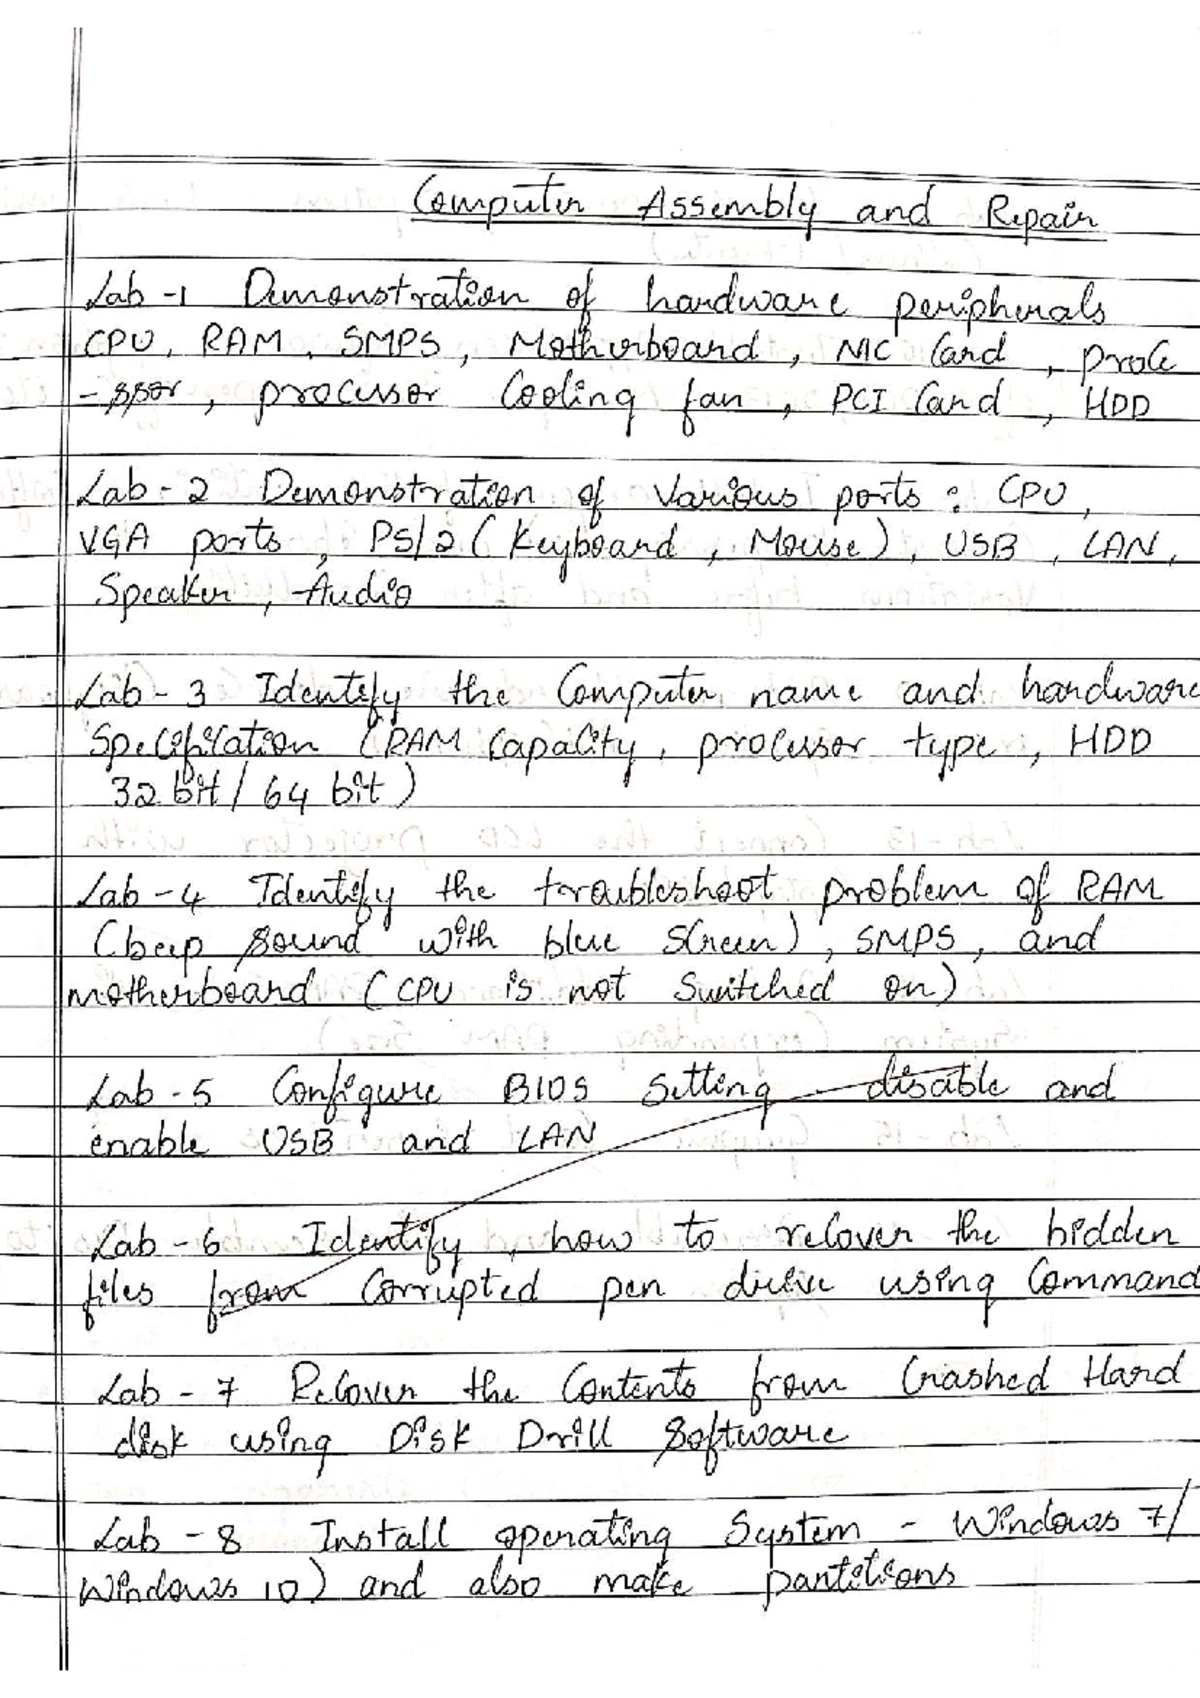 Computer Assembly and Repair
Lab -1 Demonstration of hardware peripherals
CPU, RAM, SMPS, Motherboard, NIC Card, proce
-ssor, processor Cooling fan, PCI Card, HDD
Lab - 2 Demonstration of Various ports : CPU,
VGA ports, PS/2 (Keyboard, Mouse), USB, LAN,
Speaker, Audio
Lab - 3 Identify the Computer name and hardware
Specification (RAM Capacity, processor type, HDD
32 bit / 64 bit)
Lab - 4 Identify the troubleshoot problem of RAM
(beep sound with blue screen), SMPS, and
motherboard (CPU is not Switched on)
Lab - 5 Configure BIOS Setting - disable and
enable USB and LAN
Lab - 6 Identify, how to recover the hidden
files from Corrupted pen drive using Command
Lab - 7 Recover the Contents from Crashed Hard
disk using Disk Drill Software
Lab - 8 Install operating System - Windows 7/
Windows 10) and also make partitions